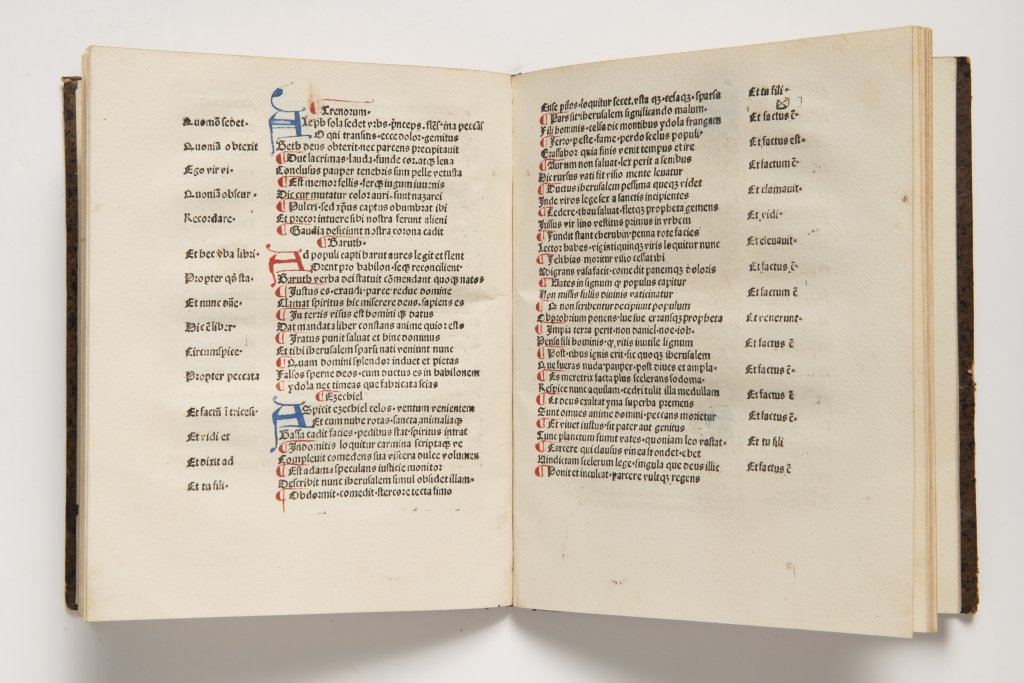 Trenorum.
Quomō sedet. Aleph sola sedet vrbs. pn̄ceps. fles. ina peccās
O qui transitis. ecce dolor. gemitus
Quoniā obtexit Beth deus obtexit. nec parcens precipitauit
Due lacrimas. lauda. funde cor. atqꝫ leua
Ego vir vi. Conclusus pauper tenebris sum pelle vetusta
Est memor fellis. ferqꝫ iugum iuuenis
Quoniā obscur. Dic cur mutatur color auri. sunt nazarei
Pulcri. sed xp̄us captus obumbrat ibi
Recordare. Et precor intuere sibi nostra ferunt alieni
Gaudia deficiunt nostra corona cadit
Baruth.
Et hec v̄ba libri. Ad populi capti barut aures legit et flent
Orent pro babilon. seqꝫ reconcilient.
Propter qd̄ sta. Baruth verba dei statuit cōmendant quoqꝫ natos
Iustus es. exaudi. parce reduc domine
Et nunc dn̄e. Clamat spiritus hic miserere deus. sapiens es
In terris visus est homini qꝫ datus
Hic ē liber. Dat mandata liber constans anime quior esto
Iratus punit saluat et hinc dominus
Circumspice. Et tibi iherusalem sparsi nati veniunt nunc
Quam domini splendor induet et pietas
Propter peccata Falsos sperne deos. cum ductus es in babilonem
ydola nec timeas que fabricata scias
Ezechiel
Et factū ī tricesi. Aspicit ezechiel celos. ventum venientem
Et cum nube rotas. sancta animalia qꝫ
Et vidi et Hassa cadit facies. pedibus stat. spiritus intrat
Indomitis loquitur carmina scriptaqꝫ ve
Et dixit ad Compleuit comedens sua viscera dulce volumen
Est adama speculans iusticie monitor
Et tu fili. Describit nunc iherusalem simul obsidet illam.
Obdormit. comedit. stercore tecta fimo
Ense pilos. loquitur secet. vsta qꝫ. cesaqꝫ. sparsa Et tu fili.
Pars sit iherusalem significando malum.
Fili hominis. celsa dic montibus ydola frangam Et factus ē.
Ferro. peste. fame. perdo scelus populi
Crassabor quia finis venit tempus et ire Et factus est.
Aurum non saluat. lex perit a senibus
Hic rursus vati fit visio mente leuatur Et factum ē.
Ductus iherusalem pessima queqꝫ videt
Inde viros lege sex a sanctis incipientes Et clamauit.
Cedere. thau saluat. fletqꝫ propheta gemens
Iussus vir lino vestitus primus in vrbem Et vidi.
Fundit stant cherubin. penna rote facies
Lector habes. viginti quinqꝫ viris loquitur nunc Et eleuauit.
Felthias moritur visio cessat ibi
Migrans vasa facit. comedit panemqꝫ doloris Et factus ē.
Vates in signum qꝫ populus capitur
Non missis fultis diuinis vaticinatur Et factum ē
Qꝫ non scribentur decipiunt populum
Obprobrium ponens. lue sue erransqꝫ propheta Et venerunt.
Impia terra perit. non daniel. noe. iob.
Pensa fili hominis. qꝫ vitis inutile lignum Et factus ē
Post. ebus ignis erit. sic quoqꝫ iherusalem
Que fueras nuda. pauper. post diues et ampla. Et factus ē.
Es meretrix facta plus scelerans sodoma.
Respice nunc aquilam. cedri tulit illa medullam Et factus ē
Et deus exaltat yma superba premens
Sunt omnes anime domini. peccans morietur Et factus ē.
Et viuet iustus. sit pater aut genitus
Tunc planctum sumit vates. quoniam leo vastat. Et tu fili
Carcere qui clausus vinea frondet. ebet
Vindictam scelerum lege. singula que deus illic Et factus ē
Ponit et inculcat. parcere vultqꝫ regens